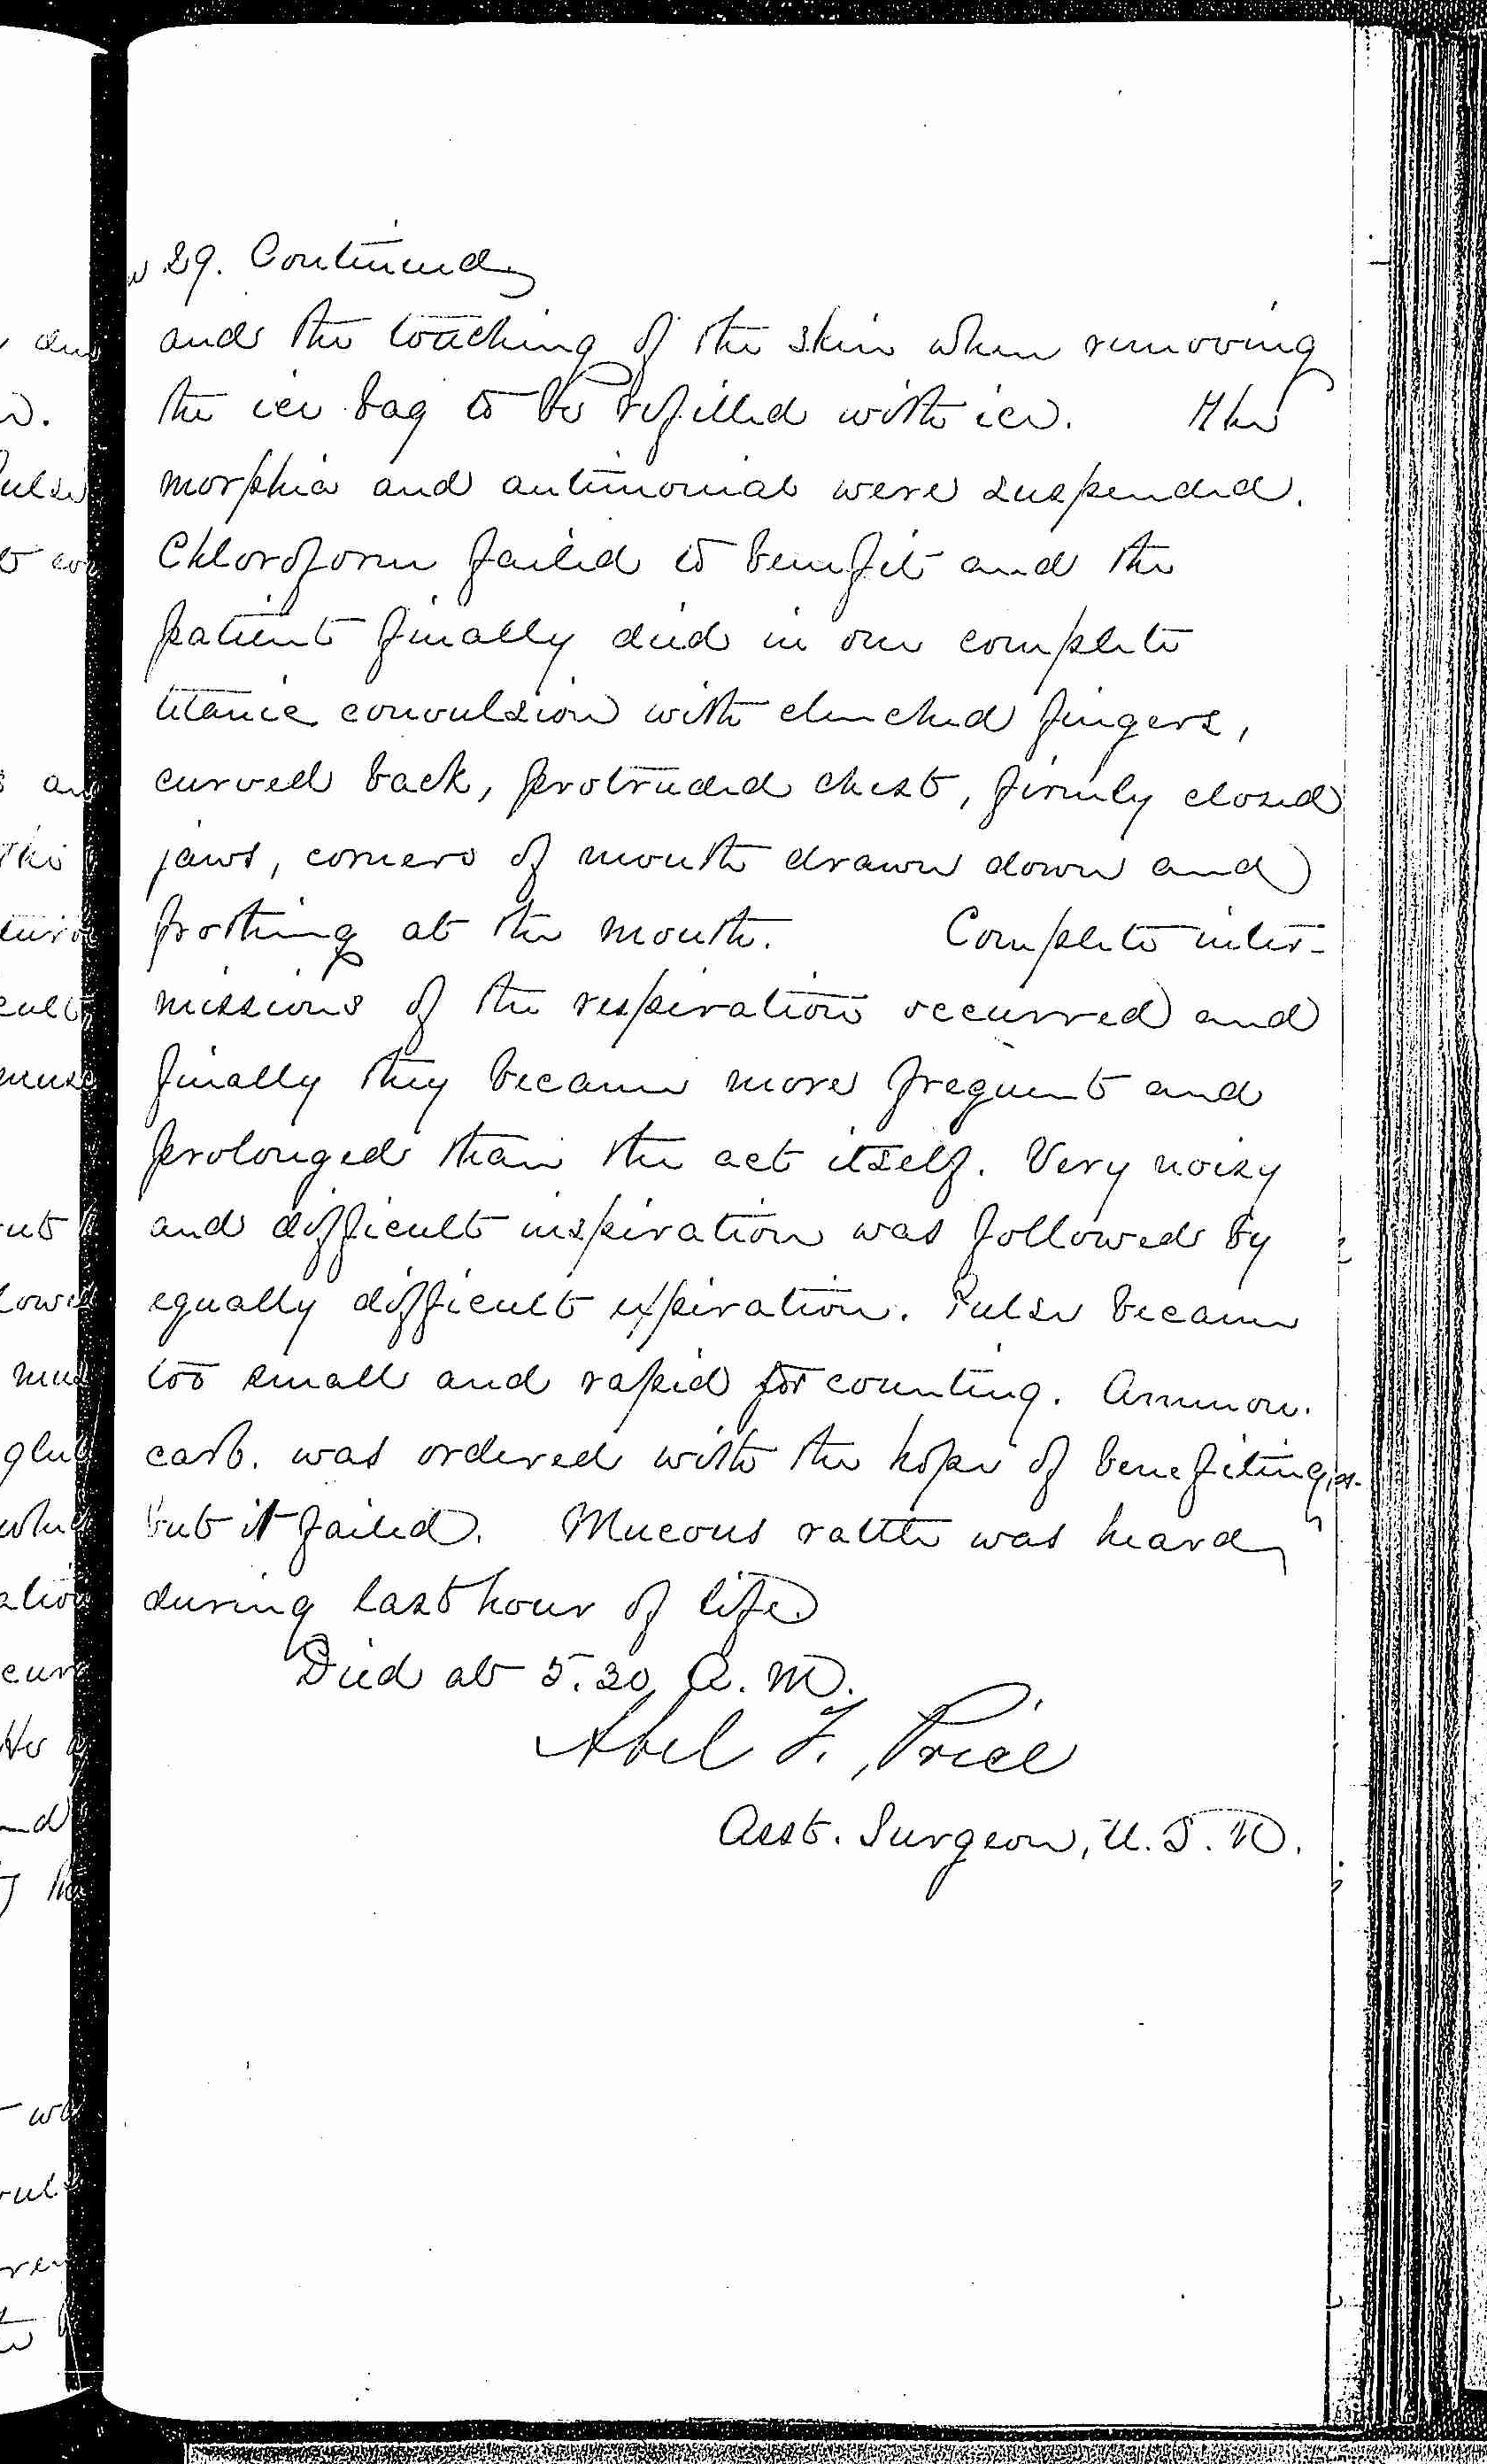 29. Continued
and the touching of the skin when removing
the ice bag to be refilled with ice. The
morphia and antimonial were suspended.
Chloroform failed to benefit and the
patient finally died in one complete
titanic convulsion with clenched fingers,
curved back, protruded chest, firmly closed
jaws, corners of mouth drawn down and
frothing at the mouth. Complete inter-
missions of the respiration occurred and
finally they became more frequent and
prolonged than the act itself. Very noisy
and difficult inspiration was followed by
equally difficult expiration. Pulse became
too small and rapid for counting. Ammon.
carb. was ordered with the hope of benefiting
but it failed. Mucous rattle was heard
during last hour of life
Died at 5.30 A.M.
Abel F. Price
Asst. Surgeon, U.S.N.